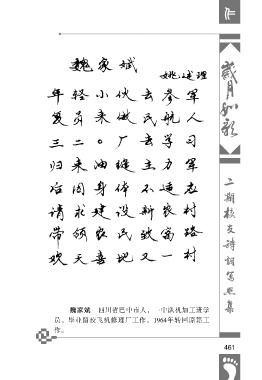 魏家斌
姚述理
年轻小伙去参军
复员来做民航人
三二〇厂去学习
归来油缝主力军
召因身体不适应
请求建设新农村
带领农民致富路
欢天喜地又一村
魏家斌 四川省巴中市人，一中队机加工班学
员。毕业留校飞机修理厂工作。1964年转回原籍工
作。
岁月如歌
二期校友诗词写照集
461